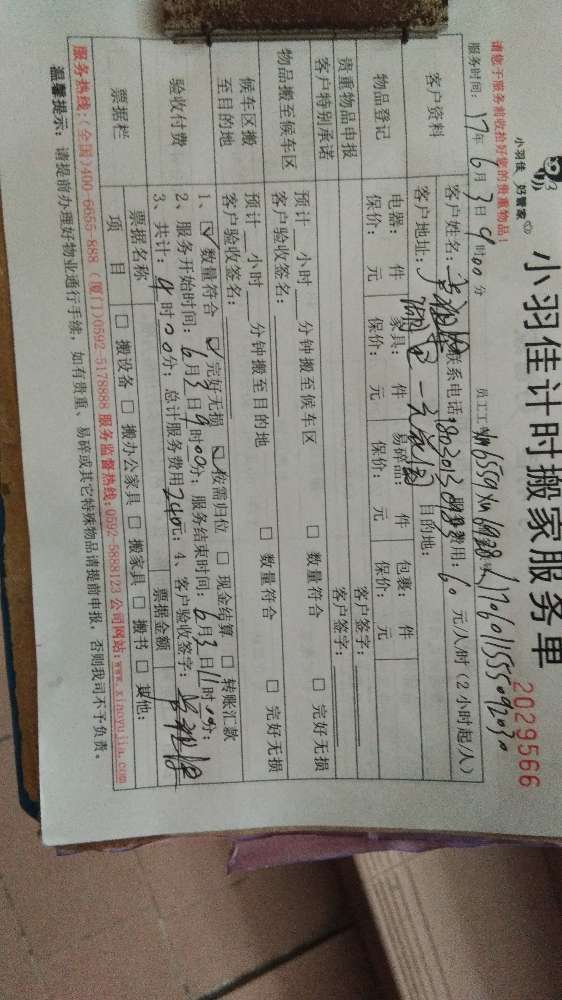 小羽佳 好管家
小羽佳计时搬家服务单
2029566
请您于服务前收拾好您的贵重物品！
服务时间：17年6月3日9时00分 员工工号
客户资料
客户姓名： 联系电话： 服务费用：60元/人/时（2小时起/人）
客户地址： 目的地：
物品登记
电器： 件 家具： 件 易碎品： 件 包裹： 件
保价： 元 保价： 元 保价： 元 保价： 元
贵重物品申报 客户签字：
客户特别承诺 客户签字：
物品搬至候车区
预计 小时 分钟搬至候车区 □ 数量符合 □ 完好无损
客户验收签名：
候车区搬至目的地
预计 小时 分钟搬至目的地 □ 数量符合 □ 完好无损
客户验收签名：
验收付费
1、☑ 数量符合 ☑ 完好无损 ☑ 按需归位 □ 现金结算 □ 转账汇款
2、服务开始时间：6月3日9时00分；服务结束时间：6月3日11时00分；
3、共计：4时00分；总计服务费用240元；4、客户验收签字：
票据栏
票据名称 票据金额
项 目 □ 搬设备 □ 搬办公家具 □ 搬家具 □ 搬书 □ 其他：
服务热线：(全国)400-6655-888 (厦门)0592-5178888 服务监督热线：0592-5888123 公司网站：www.xiaoyujia.com
温馨提示：请提前办理好物业通行手续，如有贵重、易碎或其它特殊物品请提前申报，否则我司不予负责。